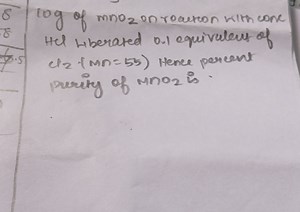 10g of MnO2 on reaction with conc
Hcl liberated 0.1 equivalent of
cl2 . (Mn = 55) Hence percent
purity of MnO2 is